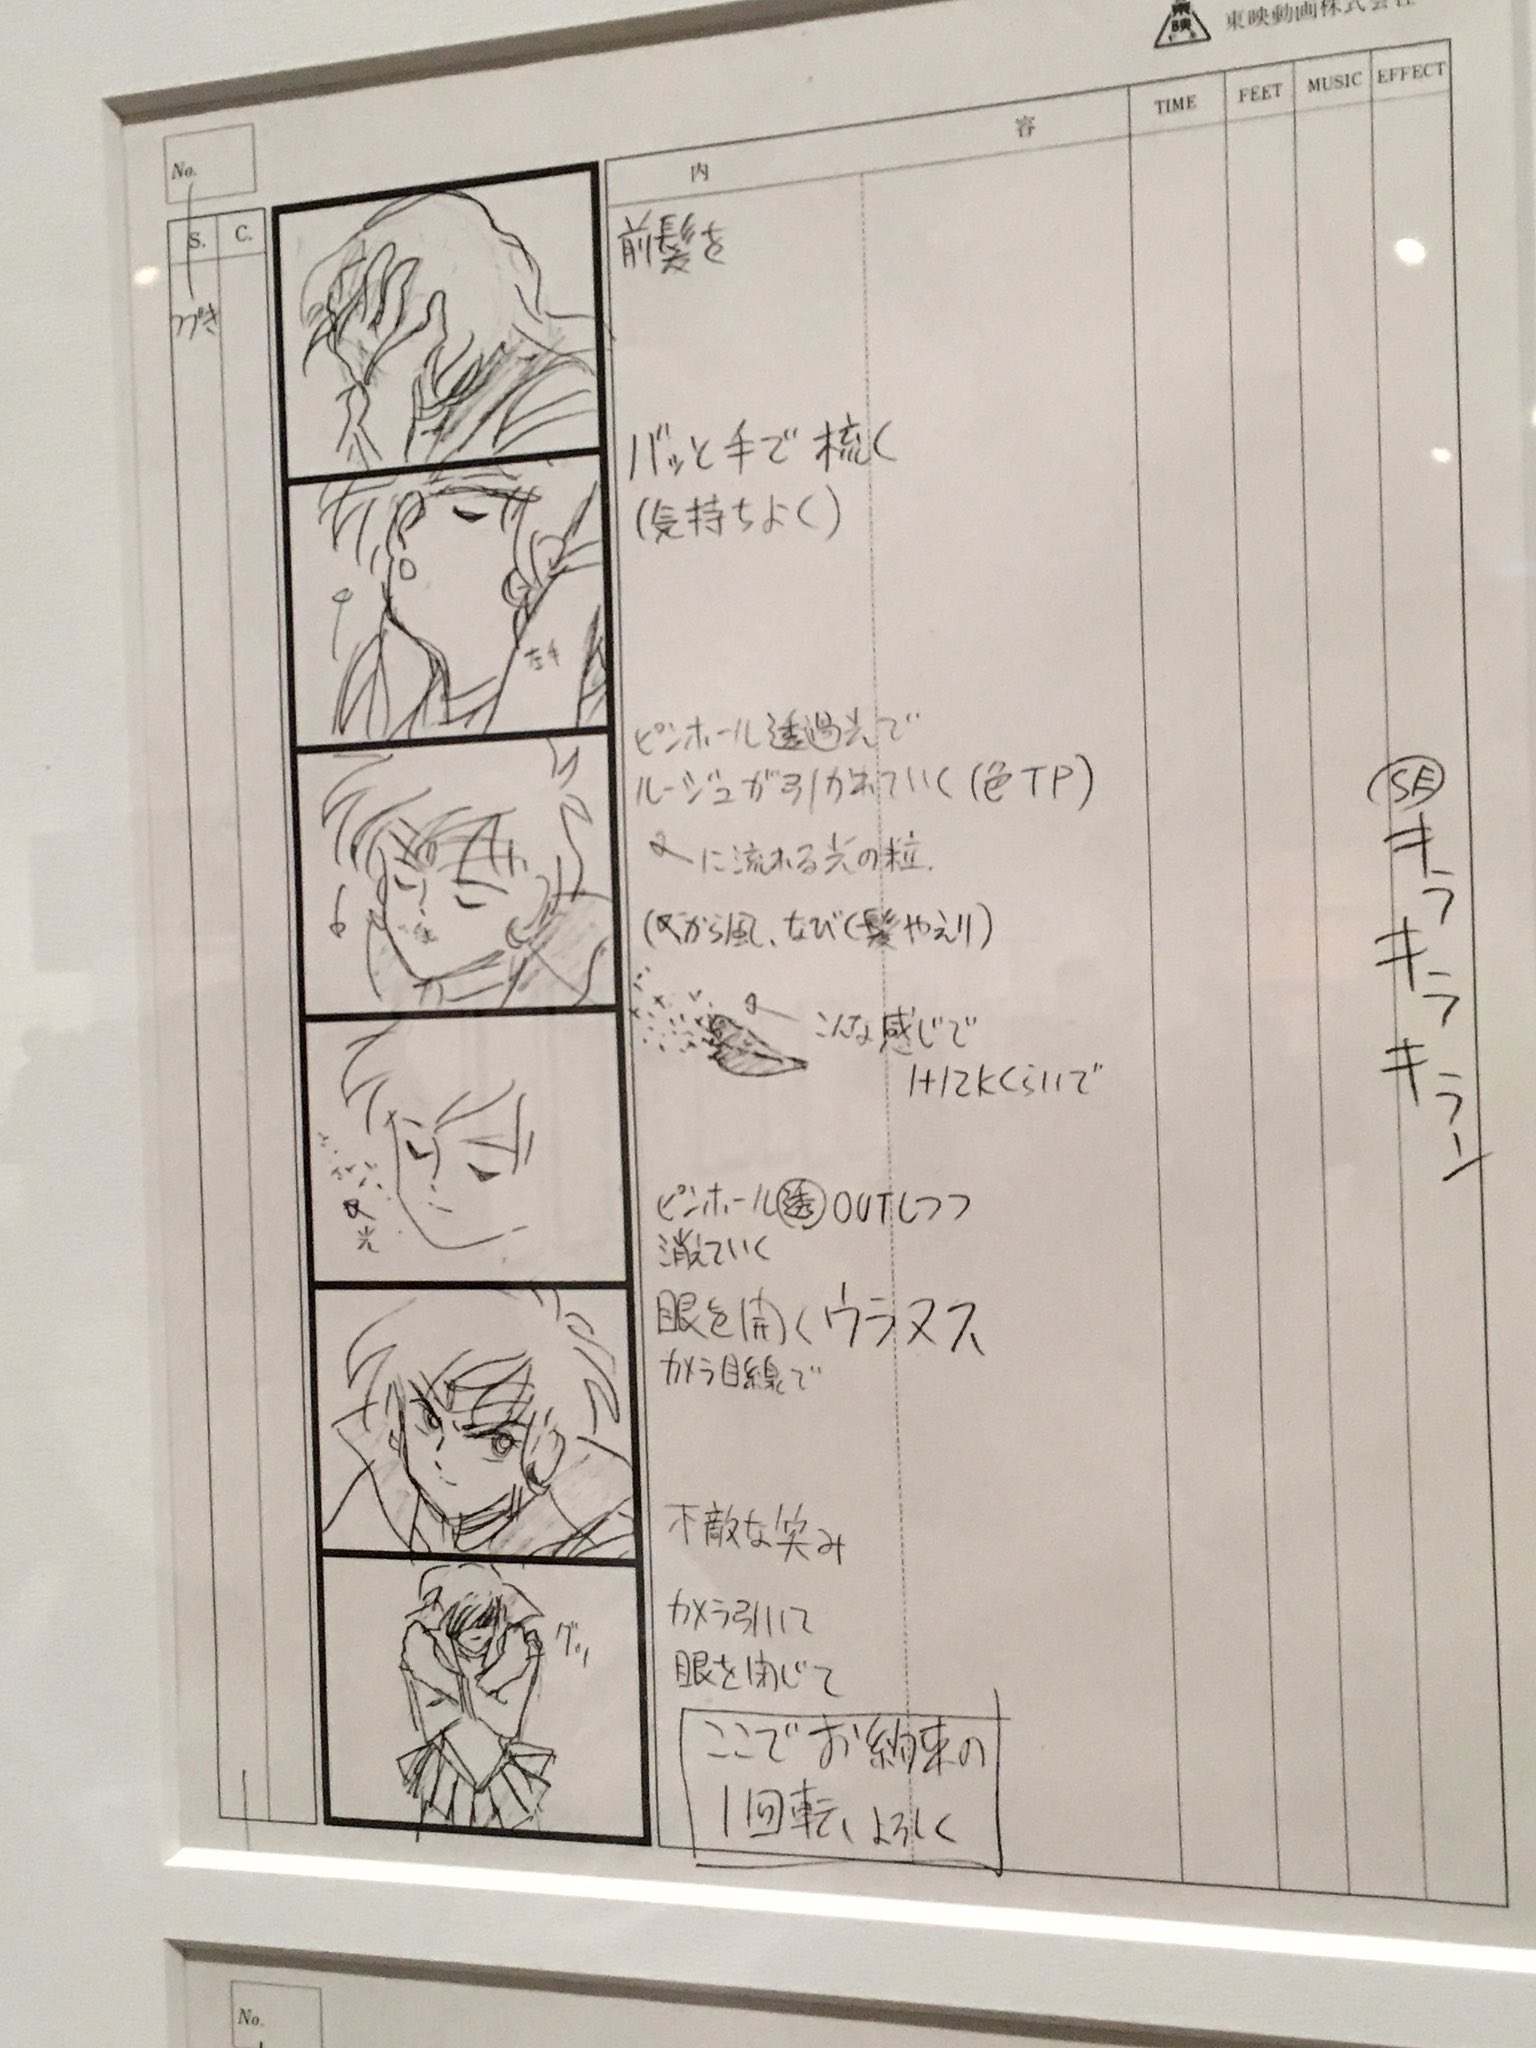 東映動画株式会社
No.
S. C. 内 容 TIME FEET MUSIC EFFECT
つづき
前髪を
バッと手で梳く
(気持ちよく)
左手
ピンホール透過光で
ルージュが引かれていく(色TP)
に流れる光の粒.
から風、なびく髪やえり)
こんな感じで
1+12Kくらいで
SE
キラ
キラ
キラーン
光
ピンホール透OUTしつつ
消えていく
眼を開くウラヌス
カメラ目線で
不敵な笑み
グッ
カメラ引いて
眼を閉じて
ここでお約束の
1回転、よろしく
No.